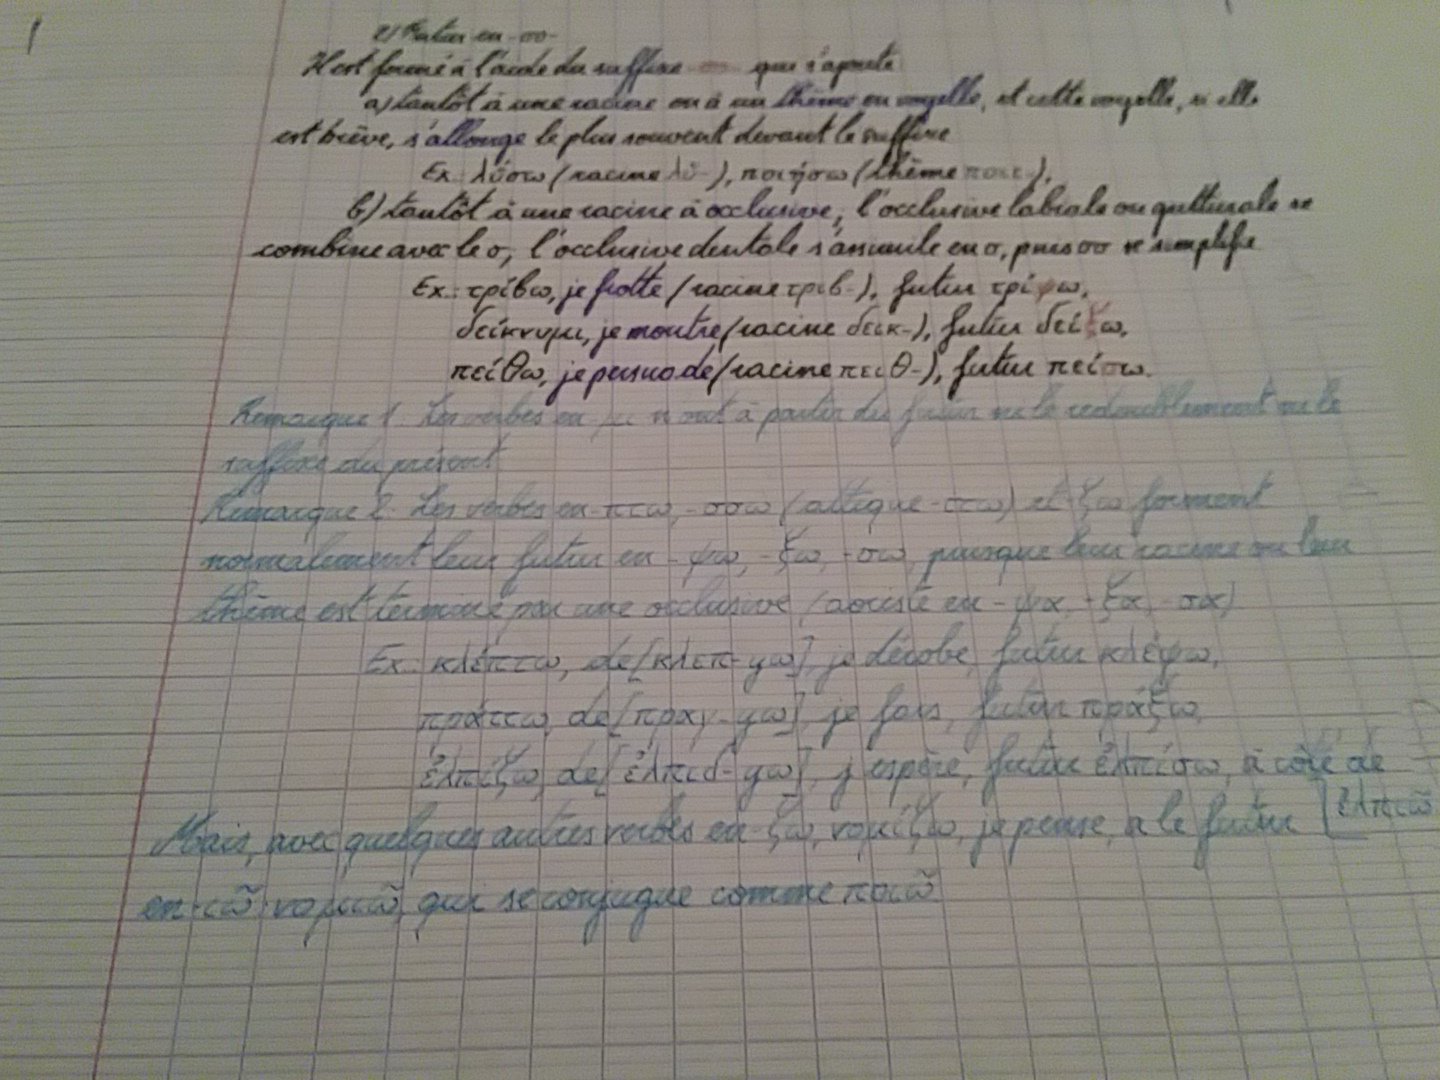 2) Futur en -σο-
Il est formé à l'aide du suffixe -σο- qui s'ajoute
a) tantôt à une racine ou à un thème en voyelle, et cette voyelle, si elle
est brève, s'allonge le plus souvent devant le suffixe
Ex. : λύσω (racine λῠ-), ποιήσω (thème ποιε-),
b) tantôt à une racine à occlusive ; l'occlusive labiale ou gutturale se
combine avec le σ ; l'occlusive dentale s'assimile en σ, puis σσ se simplifie
Ex. : τρίβω, je frotte (racine τριβ-), futur τρίψω,
δείκνυμι, je montre (racine δεικ-), futur δείξω,
πείθω, je persuade (racine πειθ-), futur πείσω.
Remarque 1. Les verbes en -μι n'ont à partir du futur ni le redoublement ni le
suffixe du présent
Remarque 2. Les verbes en -πτω, -σσω (attique -ττω) et -ζω forment
normalement leur futur en -ψω, -ξω, -σω, puisque leur racine ou leur
thème est terminé par une occlusive (aoriste en -ψα, -ξα, -σα)
Ex. : κλέπτω, de [κλεπ-yω], je dérobe, futur κλέψω,
πράττω, de [πραγ-yω], je fais, futur πράξω,
ἐλπίζω, de [ἐλπιδ-yω], j'espère, futur ἐλπίσω, à côté de
[ἐλπιῶ
Mais, avec quelques autres verbes en -ζω, νομίζω, je pense, a le futur
en -ιῶ : νομιῶ, qui se conjugue comme ποιῶ